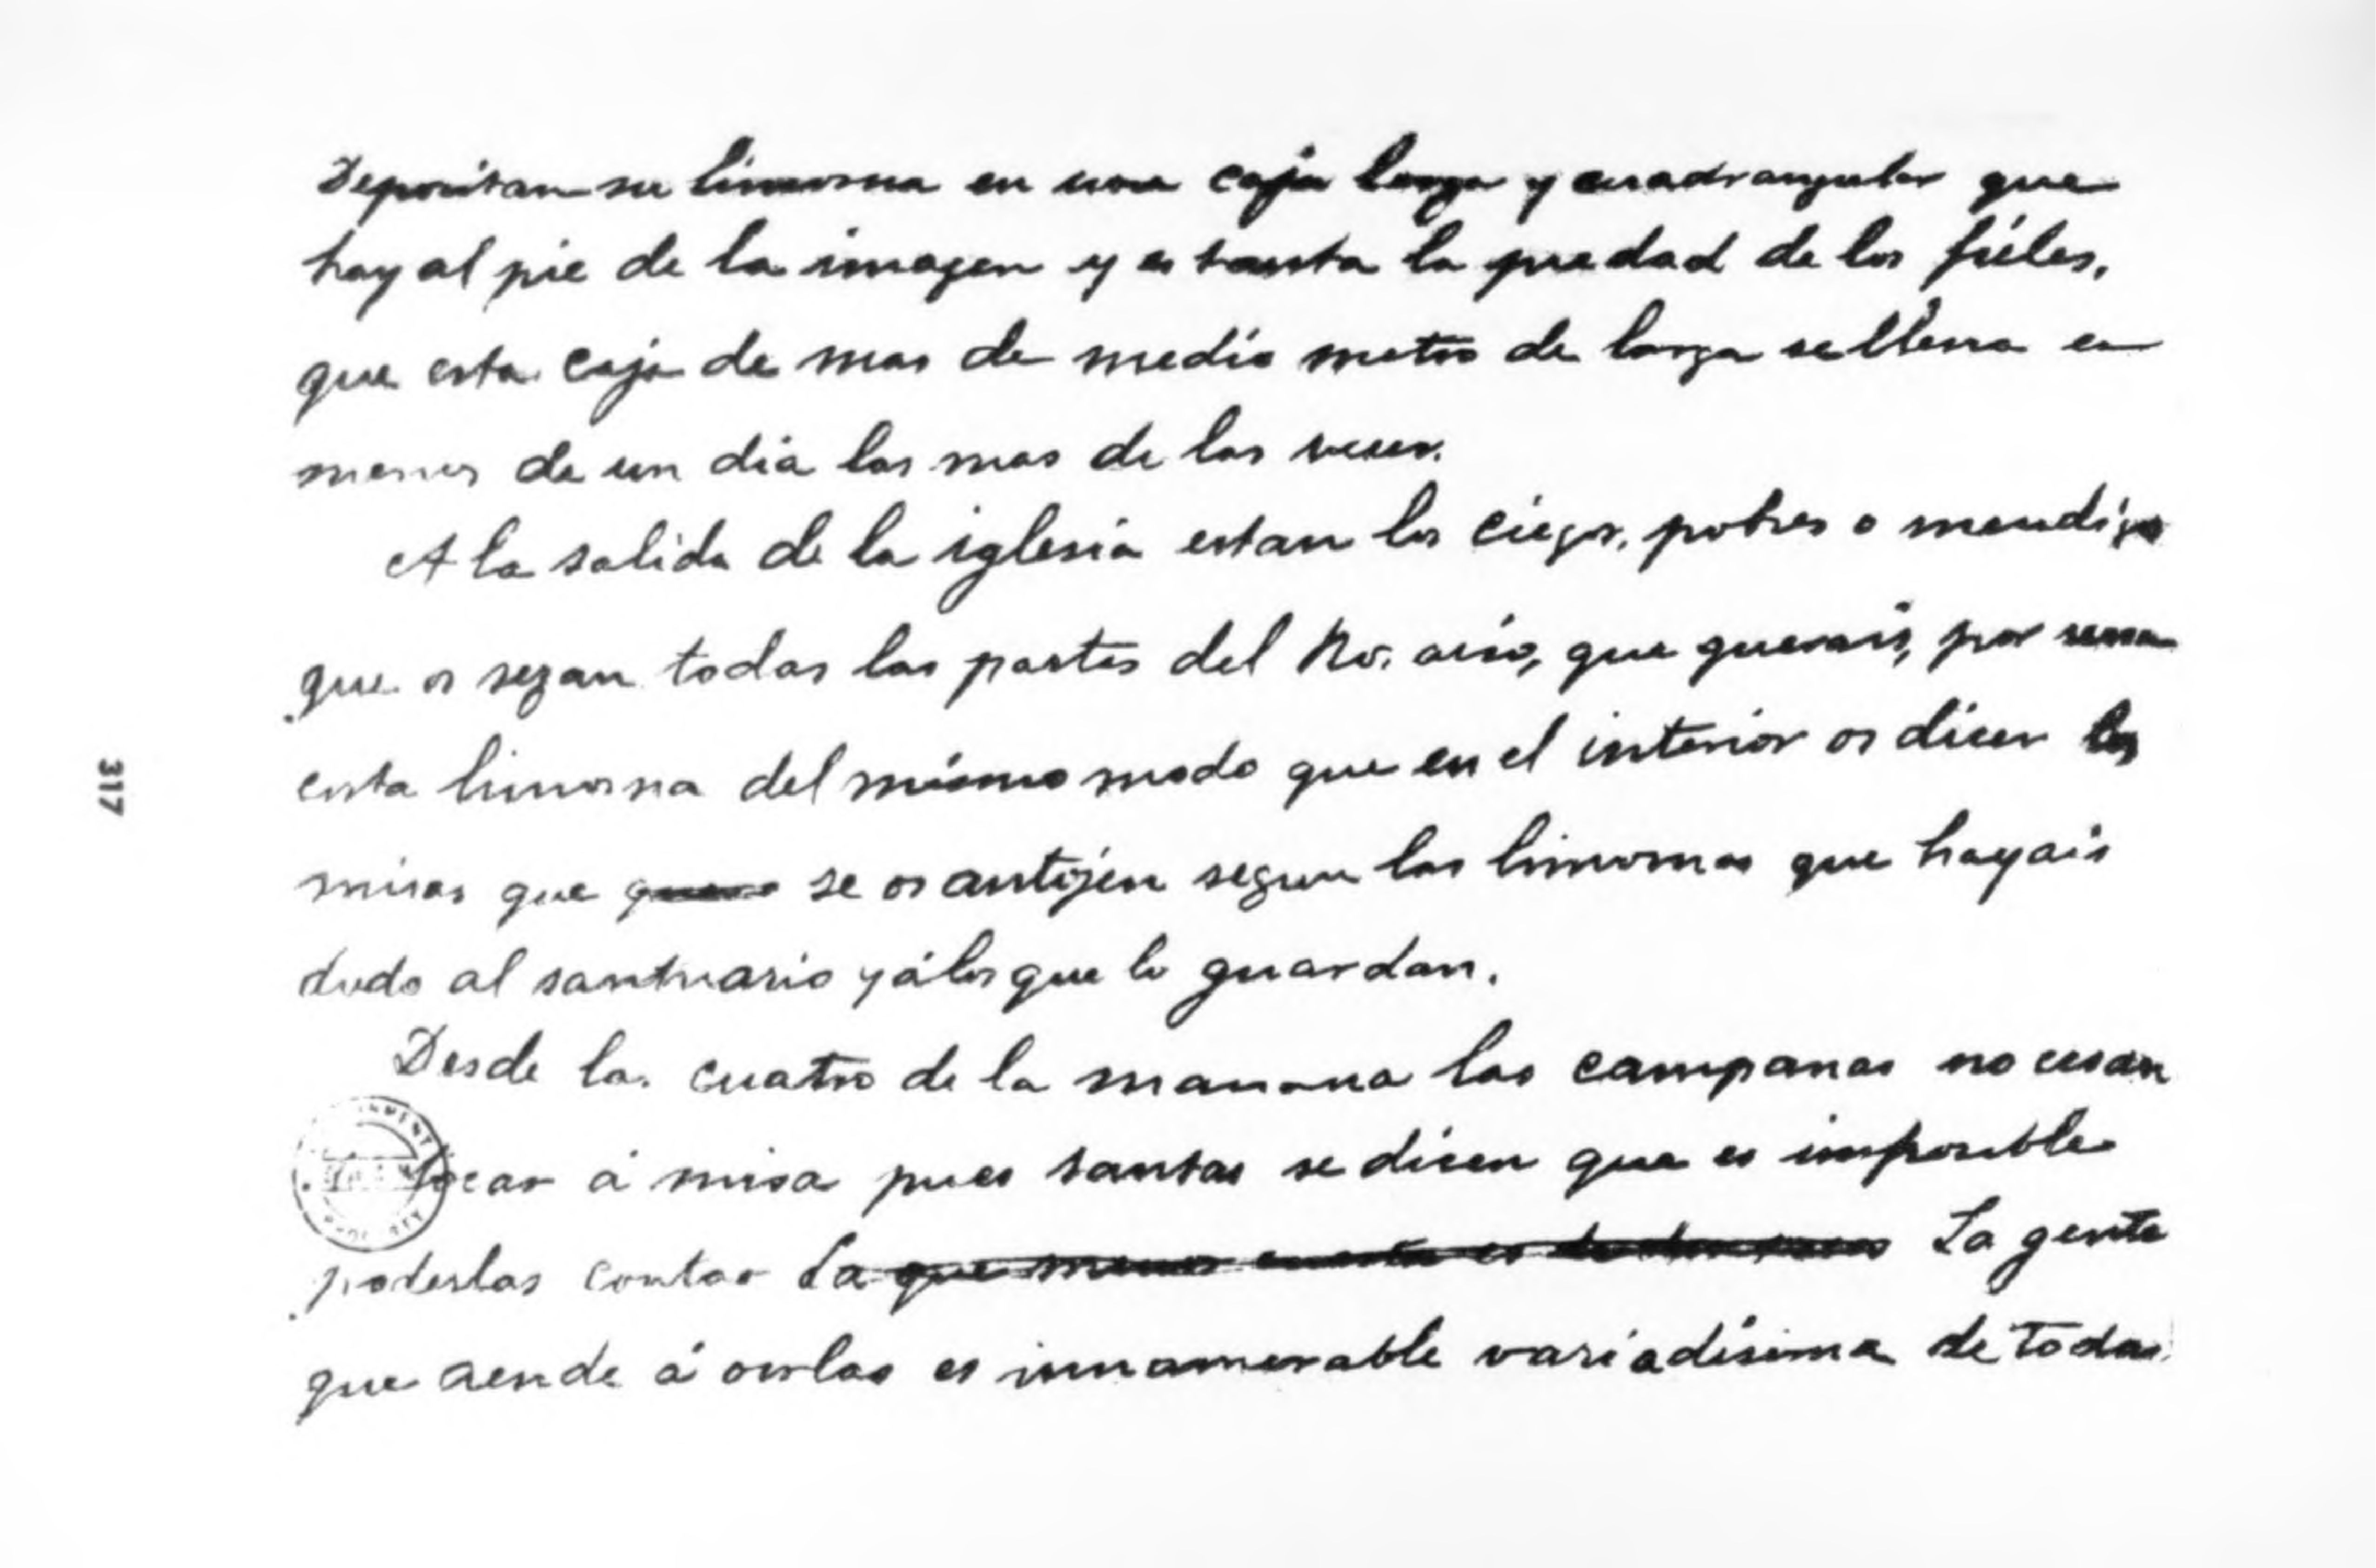 Depositan su limosna en una caja larga y cuadrangular que
hay al pie de la imagen y es tanta la piedad de los fieles,
que esta caja de mas de medio metro de larga se llena en
menos de un dia las mas de las veces.
A la salida de la iglesia estan los ciegos, pobres o mendigos
que os rezan todas las partes del Rosario, que querais, por
corta limosna del mismo modo que en el interior os dicen las
misas que se os antojen segun las limosnas que hayais
dado al santuario y á los que lo guardan.
Desde las cuatro de la manana las campanas no cesan
tocar á misa pues tantas se dicen que es imposible
poderlas contar La que menos cuesta es de dos pesos La gente
que acude á oirlas es innumerable variadísima de todas
317